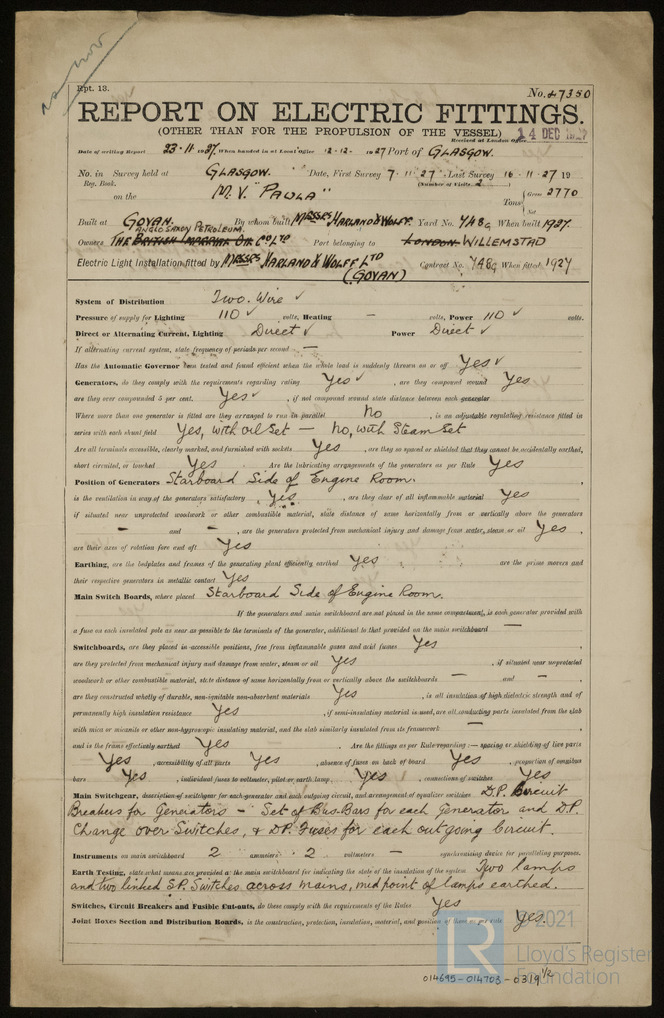 no nov
Rpt. 13.
No. 47350
REPORT ON ELECTRIC FITTINGS.
(OTHER THAN FOR THE PROPULSION OF THE VESSEL)
Received at London Office 14 DEC 1927
Date of writing Report 23·11·1927. When handed in at Local Office 12·12· 1927 Port of GLASGOW.
No. in Survey held at GLASGOW. Date, First Survey 7·11·27 Last Survey 16·11·27 19
Reg. Book. (Number of Visits 2)
on the M.V. "PAULA" Tons Gross 2770
Net
Built at GOVAN. By whom built MESSRS HARLAND & WOLFF. Yard No. 748G When built 1927.
ANGLO SAXON PETROLEUM.
Owners THE BRITISH OIL CO LTD Port belonging to LONDON WILLEMSTAD
Electric Light Installation fitted by MESSRS HARLAND & WOLFF LTD Contract No. 748G When fitted 1927
(GOVAN)
System of Distribution Two. Wire ✓
Pressure of supply for Lighting 110 ✓ volts, Heating — volts, Power 110 ✓ volts.
Direct or Alternating Current, Lighting Direct ✓ Power Direct ✓
If alternating current system, state frequency of periods per second —
Has the Automatic Governor been tested and found efficient when the whole load is suddenly thrown on or off Yes ✓
Generators, do they comply with the requirements regarding rating Yes ✓, are they compound wound Yes
are they over compounded 5 per cent. Yes ✓, if not compound wound state distance between each generator
Where more than one generator is fitted are they arranged to run in parallel No, is an adjustable regulating resistance fitted in
series with each shunt field Yes, with oil Set — No, with Steam Set
Are all terminals accessible, clearly marked, and furnished with sockets Yes, are they so spaced or shielded that they cannot be accidentally earthed,
short circuited, or touched Yes. Are the lubricating arrangements of the generators as per Rule Yes
Position of Generators Starboard Side of Engine Room.
is the ventilation in way of the generators satisfactory Yes, are they clear of all inflammable material Yes
if situated near unprotected woodwork or other combustible material, state distance of same horizontally from or vertically above the generators
— and —, are the generators protected from mechanical injury and damage from water, steam or oil Yes,
are their axes of rotation fore and aft Yes
Earthing, are the bedplates and frames of the generating plant efficiently earthed Yes are the prime movers and
their respective generators in metallic contact Yes
Main Switch Boards, where placed Starboard Side of Engine Room.
If the generators and main switchboard are not placed in the same compartment, is each generator provided with
a fuse on each insulated pole as near as possible to the terminals of the generator, additional to that provided on the main switchboard —
Switchboards, are they placed in accessible positions, free from inflammable gases and acid fumes Yes
are they protected from mechanical injury and damage from water, steam or oil Yes, if situated near unprotected
woodwork or other combustible material, state distance of same horizontally from or vertically above the switchboards — and —,
are they constructed wholly of durable, non-ignitable non-absorbent materials Yes, is all insulation of high dielectric strength and of
permanently high insulation resistance Yes, if semi-insulating material is used, are all conducting parts insulated from the slab
with mica or micanite or other non-hygroscopic insulating material, and the slab similarly insulated from its framework —
and is the frame effectively earthed Yes. Are the fittings as per Rule regarding:— spacing or shielding of live parts
Yes, accessibility of all parts Yes, absence of fuses on back of board Yes, proportion of omnibus
bars Yes, individual fuses to voltmeter, pilot or earth lamp, Yes, connections of switches Yes
Main Switchgear, description of switchgear for each generator and each outgoing circuit, and arrangement of equalizer switches D.P. Circuit
Breakers for Generators — Set of Bus-Bars for each Generator and D.P.
Change over Switches, & DP. Fuses for each outgoing Circuit.
Instruments on main switchboard 2 ammeters 2 voltmeters — synchronising device for paralleling purposes.
Earth Testing, state what means are provided at the main switchboard for indicating the state of the insulation of the system Two lamps
and two linked S.P. Switches across mains, midpoint of lamps earthed.
Switches, Circuit Breakers and Fusible Cut-outs, do these comply with the requirements of the Rules Yes
Joint Boxes Section and Distribution Boards, is the construction, protection, insulation, material, and position of these as per rule Yes.
LR © 2021
Lloyd's Register
Foundation
014695-014703-0319 1/2